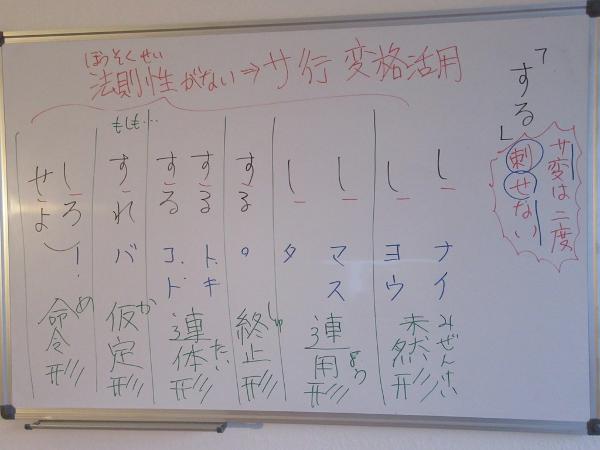 ほうそくせい
法則性がない⇒サ行変格活用
「する」
サ変は二度
刺せない
し ナイ
し ヨウ
みぜんけい
未然形
し マス
し タ
よう
連用形
する 。
しゅ
終止形
する トキ
する コト
たい
連体形
もしも…
すれ バ
か
仮定形
しろ !
せよ
め
命令形